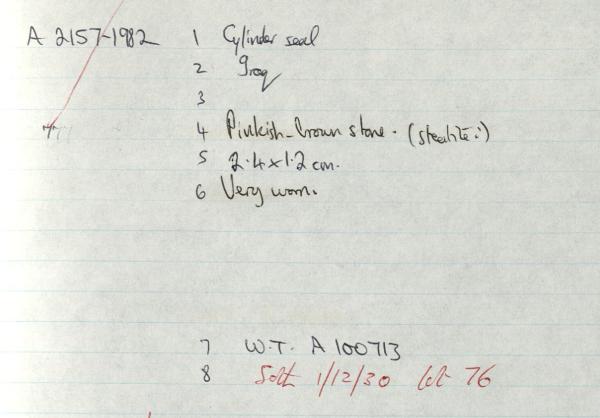 A 2157-1982 1 Cylinder seal
2 Iraq
3
4 Pinkish-brown stone. (steatite?)
5 2.4 x 1.2 cm.
6 Very worn.
7 W.T. A 100713
8 Soth 1/12/30 lot 76